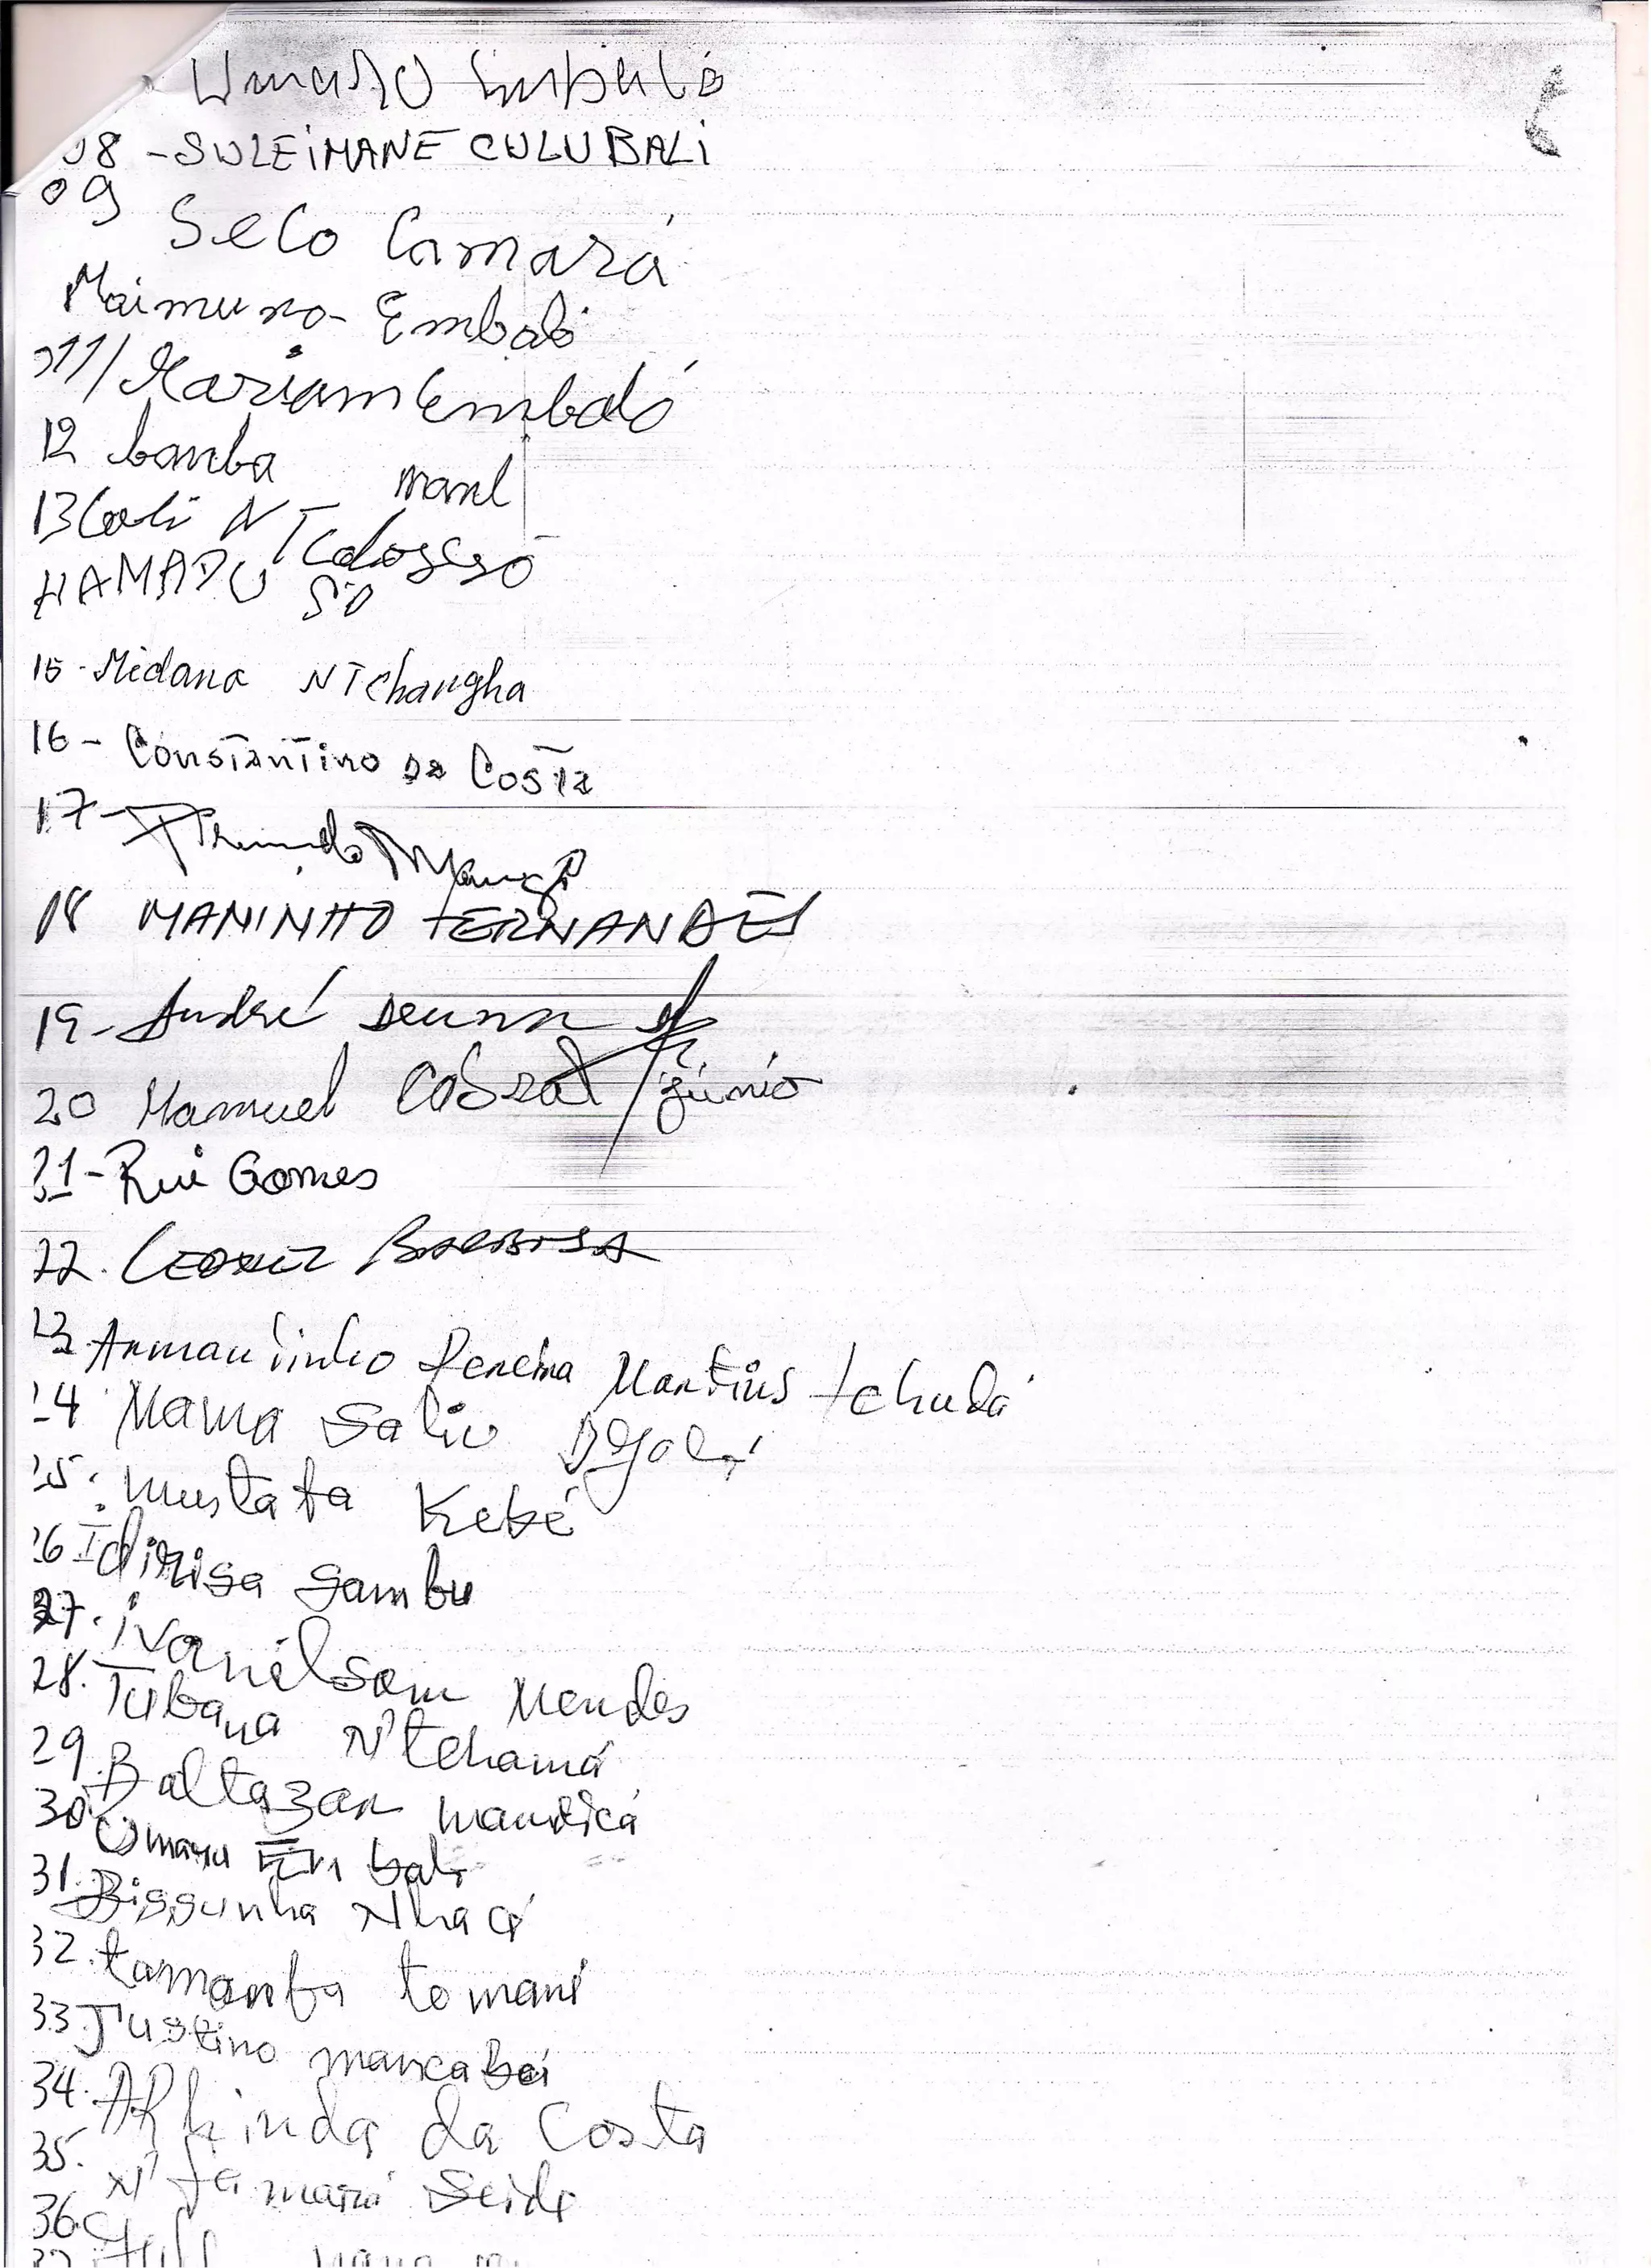 Umaro Embaló
08 - SULEIMANE CULUBALI
09
Seco Camará
Maimuna - Embaló
011/ Mariam Embaló
12 bamba mané
13 Cali N'Tchosssó
HAMADU SO
15 - Midana NTchangha
16 - Constantino da Costa
17 -
18 MANINHO FERNANDES
19 - André
20 Manuel Cabral júnio
21 - Rui Gomes
22. Leonel Barbosa
23. Armandinho Pereira Martins tchudá
24 Mama Saliu Djaló
25. Mustafa Kebé
26 Idirisa Sambu
27. ivanélsom Mendes
28. Tubana N'tchamá
29 Baltazar mandicá
30 Umaru Embaló
31. Bissunha Nhaca
32. tamanba tomané
33 Justino mancabei
34. Arlinda da Costa
35. N'famará Seide
36.
37